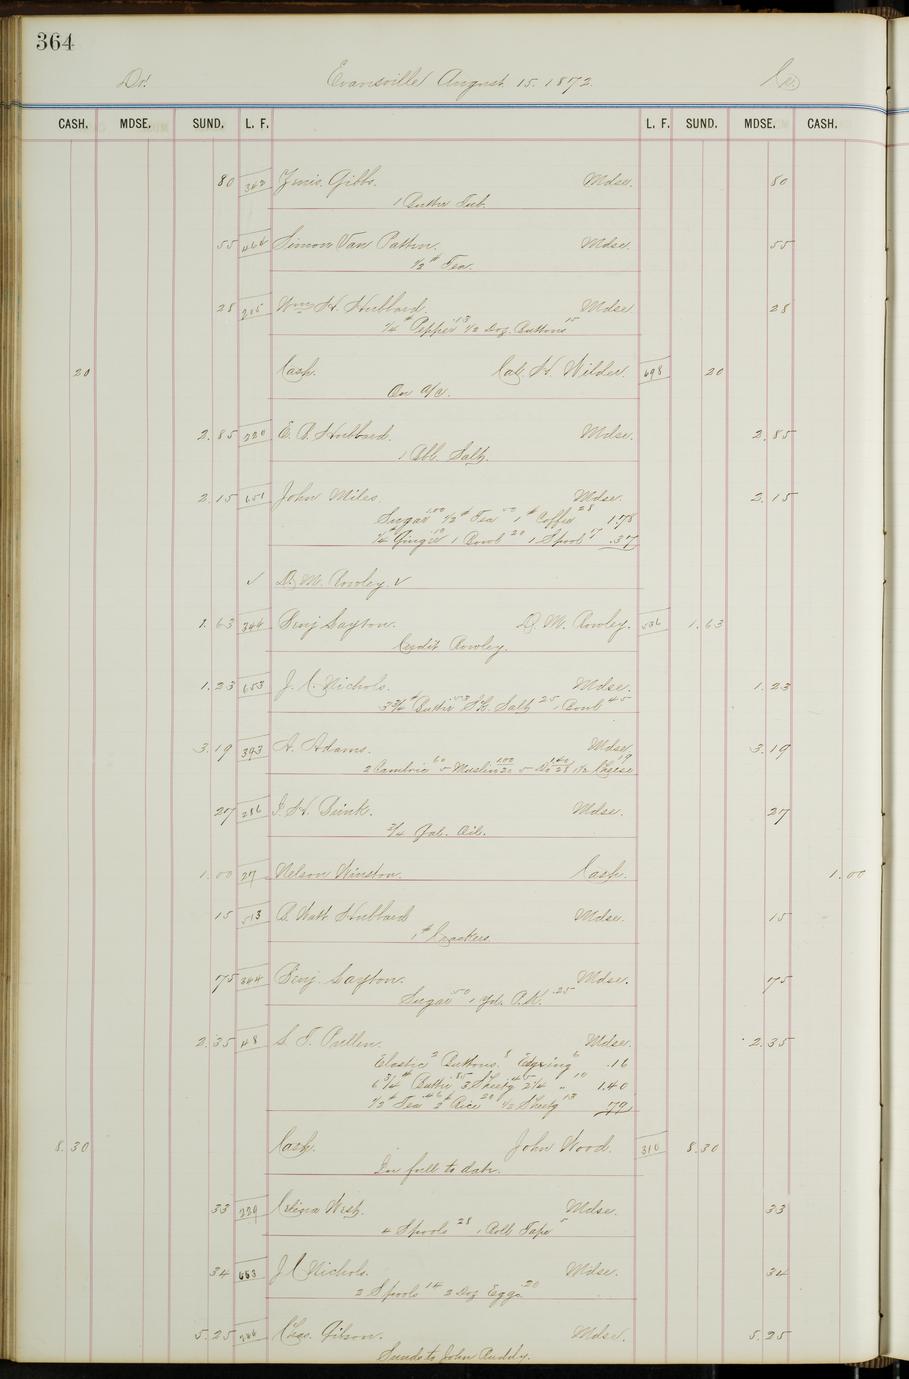 364
Dr. Evansville August 15. 1872. Cr.
CASH. MDSE. SUND. L. F. L. F. SUND. MDSE. CASH.
80 362 Gibbs. Mdse. 80
1 Butter Tub.
55 Simon Van Patten. Mdse. 55
1/2 # Tea.
28 215 Wm H. Hubbard. Mdse. 28
1/4 # Pepper 13 1/2 Doz. Buttons 15
20 Cash. Cal. H. Wilder. 698 20
On a/c.
2.85 220 E. B. Hubbard. Mdse. 2.85
1 Bbl. Salt.
2.15 651 John Miles. Mdse. 2.15
Sugar 1.00 1/2 # Tea 50 1 # Coffee 28 1.78
1/4 # Ginger .10 1 Bowl 20 1 Spool 7 .37
✓ D. M. Rowley. ✓
1.63 344 Benj Layton. D. M. Rowley. 536 1.63
Credit Rowley.
1.23 653 J. C. Nichols. Mdse. 1.23
3 3/4 # Butter 53 Sk. Salt 25 1 Bowl 45
3.19 393 A. Adams. Mdse. 3.19
2 Cambric 60 5 Muslin 1.00 20 5 Do 1.40 28 1 1/2 Cheese 19
27 286 I. H. Bunk. Mdse. 27
3/4 Gal. Oil.
1.00 27 Nelson Winston. Cash. 1.00
15 513 B. Watt Hubbard Mdse. 15
1 # Crackers.
75 344 Benj. Layton. Mdse. 75
Sugar 50 1 Yd. .25
2.35 48 S. T. Pullen. Mdse. 2.35
Elastic 2 Buttons. 8 Edging 6 .16
6 3/4 # Butter .85 3 Sheetg 45 2 1/4 " 10 1.40
1/2 # Tea .46 2 # Rice 20 1/2 Sheetg 13 .79
8.30 Cash. John Wood. 310 8.30
In full to date.
33 229 West. Mdse. 33
4 Spools 28 1 Roll Tape 5
34 653 J C Nichols. Mdse. 34
2 Spools 14 2 Doz Eggs .20
5.25 Chas. Gibson. Mdse. 5.25
Sunds to John Ruddy.